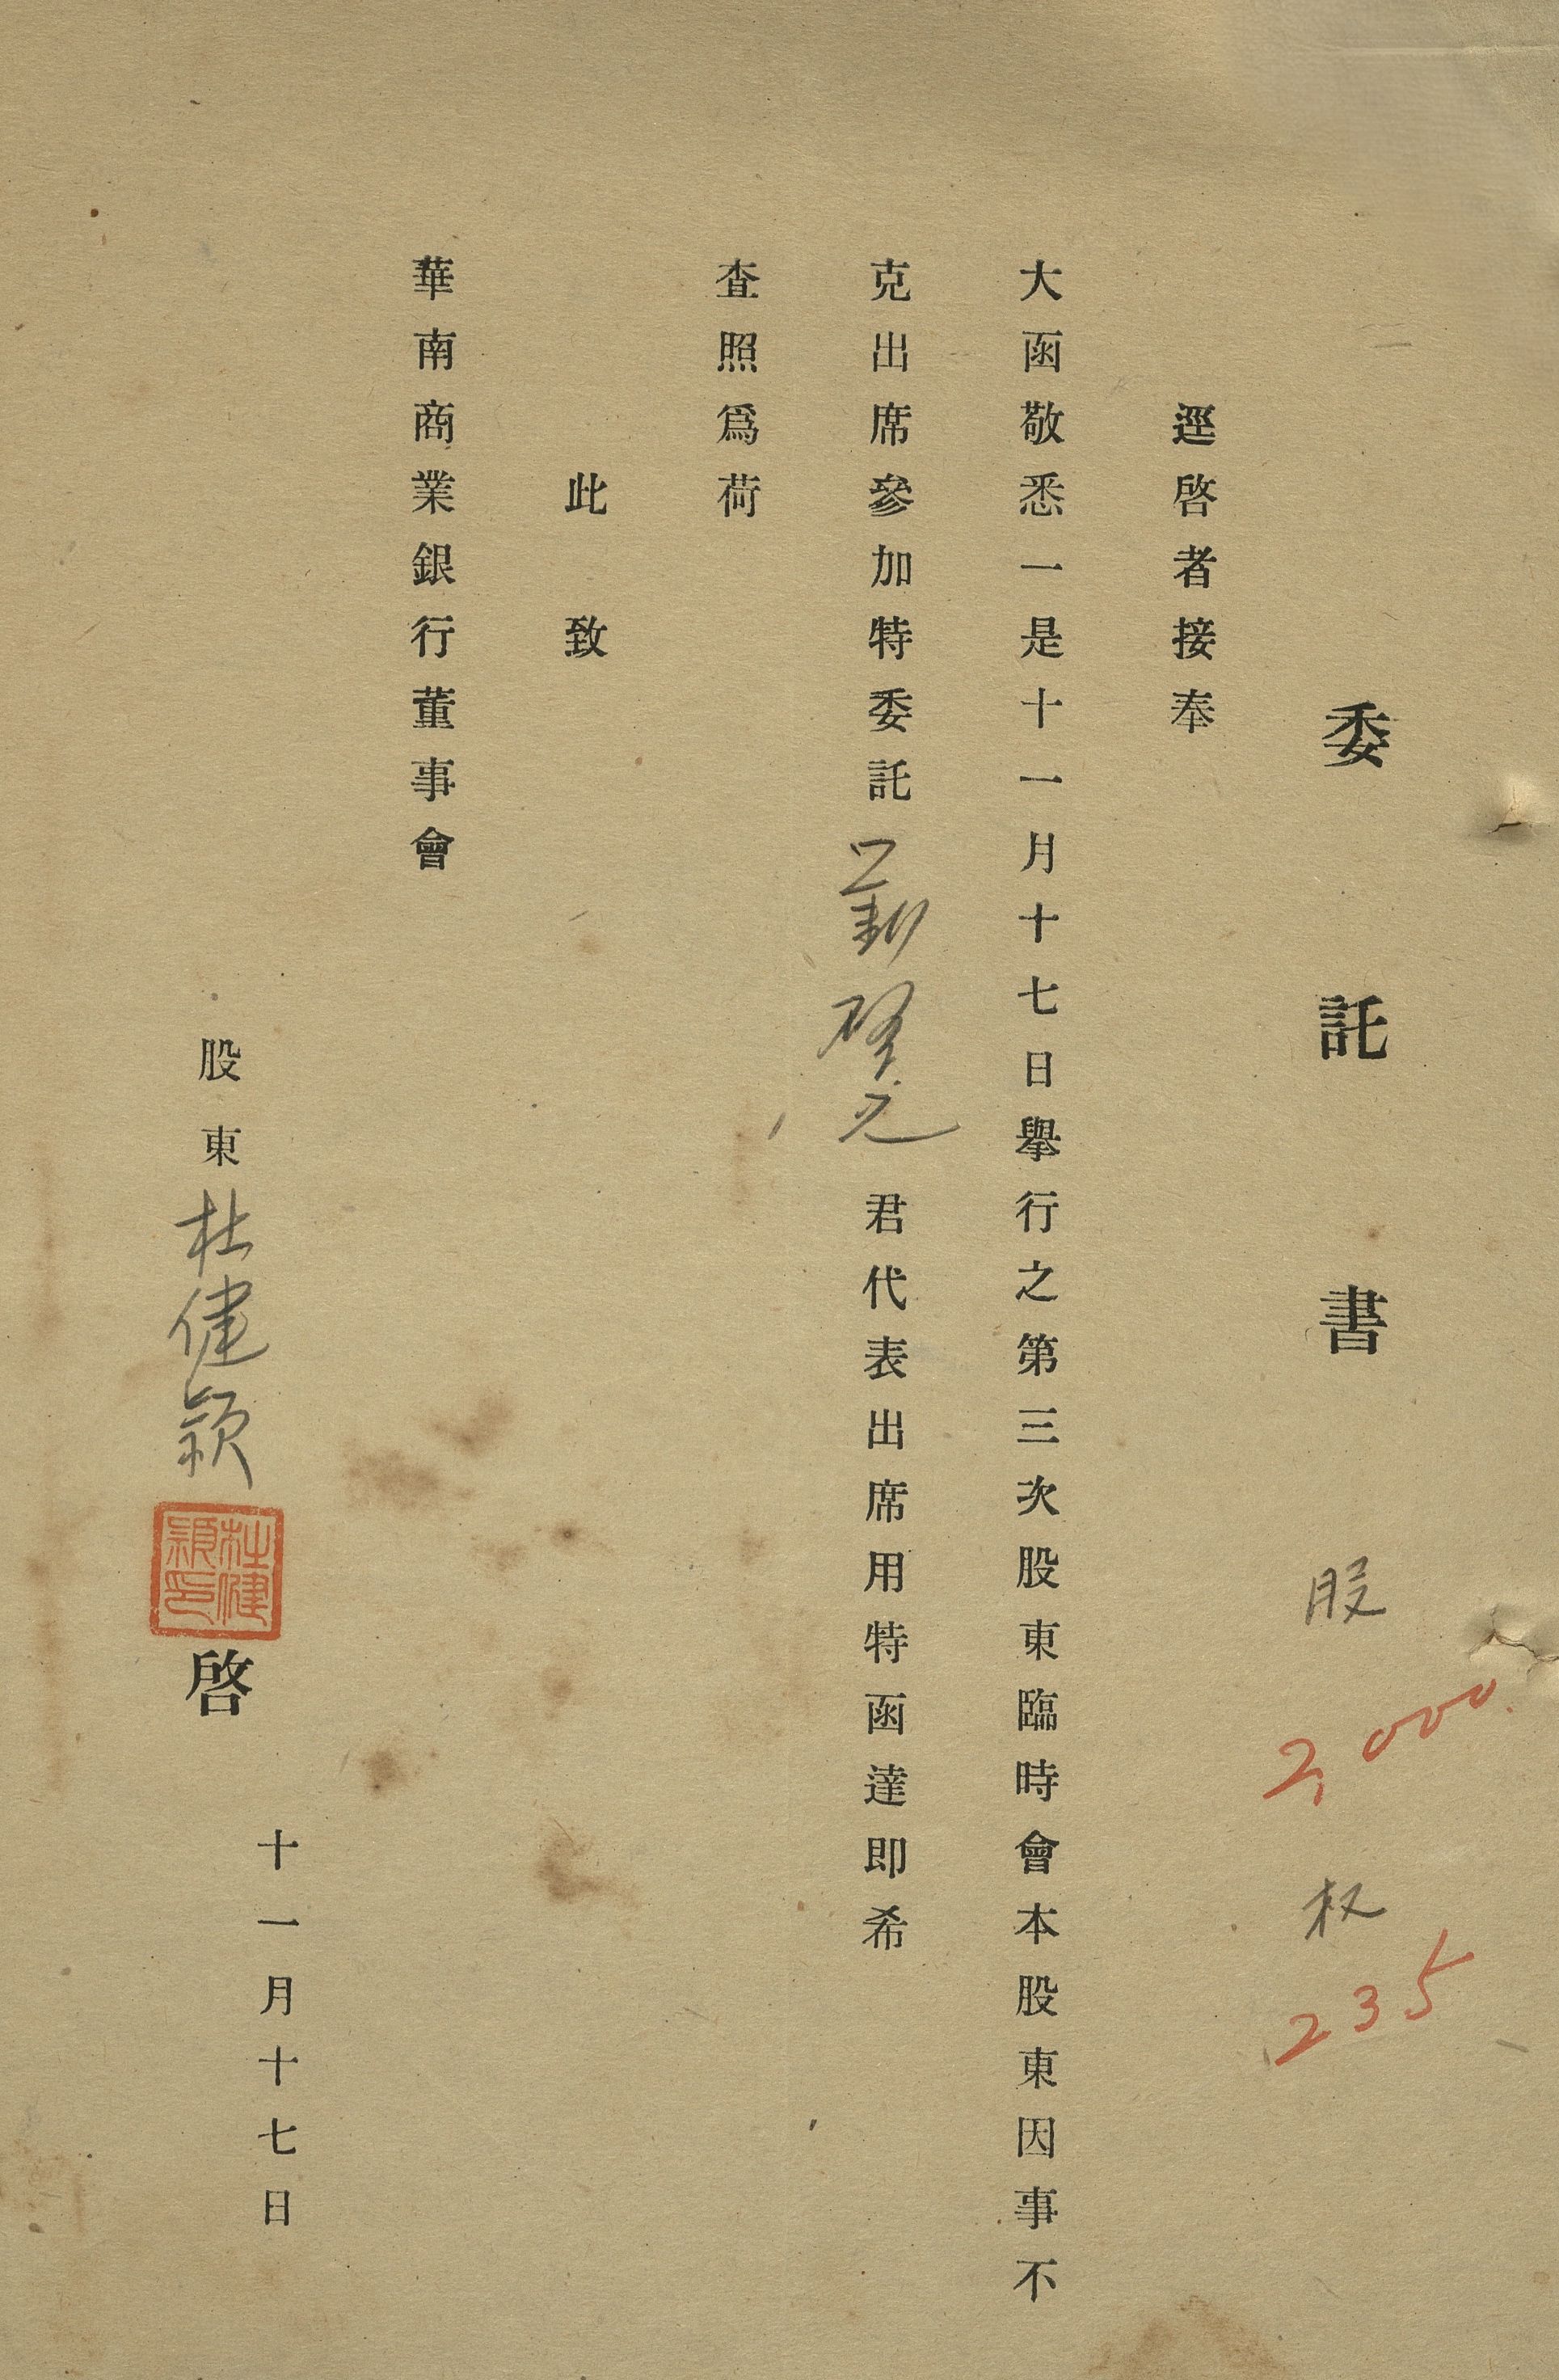 委託書 股 2,000. 权 235
逕啓者接奉
大函敬悉一是十一月十七日舉行之第三次股東臨時會本股東因事不
克出席參加特委託劉啓光君代表出席用特函達即希
查照爲荷
此致
華南商業銀行董事會
十一月十七日
股東杜健頴啓
杜健
頴印